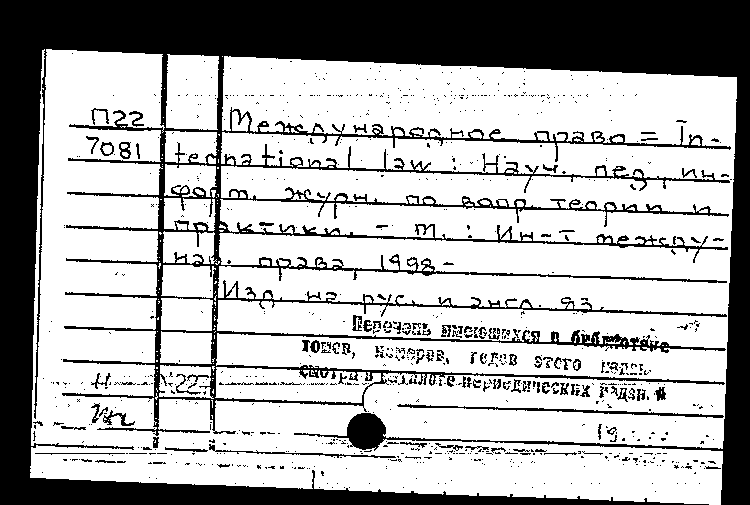 П22 Международное право = In-
7081 ternational law : Науч., пед., ин-
форм. журн. по вопр. теории и
практики. - М. : Ин-т между-
нар. права, 1998-
Изд. на рус. и англ. яз.
Перечень имеющихся в библиотеке
томов, номеров, годов этого
смотри в каталоге периодических издан.
Н №22
19